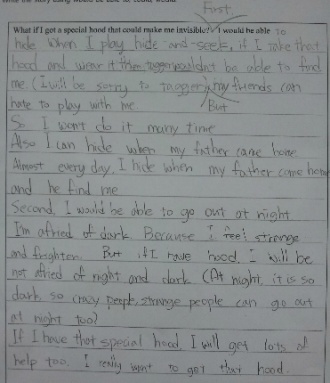 First,
What if I got a special hood that could make me invisible? I would be able to
hide when I play hide and seek, if I take that
hood and wear it then tagger wouldn't be able to find
me (I will be sorry to tagger) my friends can
But
hate to play with me.
So I won't do it many time
Also I can hide when my father came home
Almost every day, I hide when my father came home
and he find me
Second, I would be able to go out at night
I'm afried of dark Because I feel strange
and frighten. But if I have hood, I will be
not afried of night and dark (At night, it is so
dark so crazy people, strange people can go out
at night too)
If I have that special hood, I will get lots of
help too. I really want to get that hood.